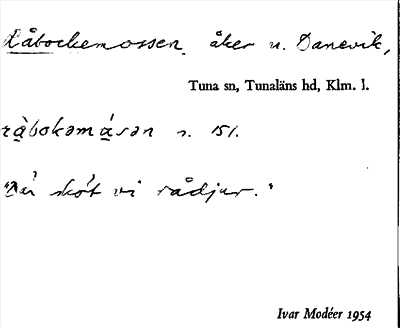 Råbockemossen, åker u. Danevik,
Tuna sn, Tunaläns hd, Klm. l.
ràbokəmásən s. 151.
"Där sköt vi rådjur."
Ivar Modéer 1954